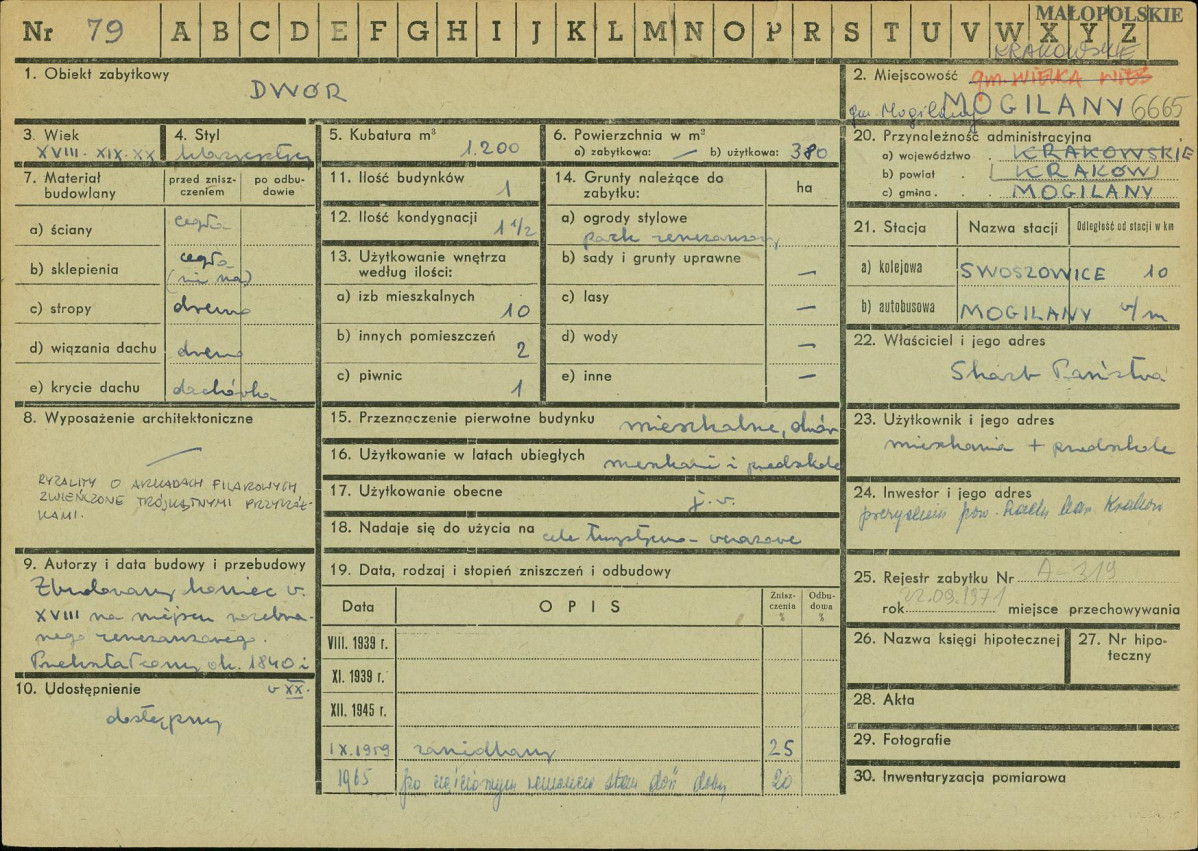 Nr 79 A B C D E F G H I J K L M N O P R S T U V W X Y Z
MAŁOPOLSKIE
KRAKOWSKIE
1. Obiekt zabytkowy
DWÓR
2. Miejscowość gm. WIELKA WIEŚ
gm. Mogilany MOGILANY 6665
3. Wiek
XVIII. XIX. XX
4. Styl
klasycystyczny
5. Kubatura m³
1.200
6. Powierzchnia w m²
a) zabytkowa: — b) użytkowa: 380
20. Przynależność administracyjna
a) województwo . KRAKOWSKIE
b) powiat . KRAKÓW
c) gmina . . MOGILANY
7. Materiał budowlany
przed zniszczeniem
po odbudowie
a) ściany cegła
b) sklepienia cegła
(piwnica)
c) stropy drewno
d) wiązania dachu drewno
e) krycie dachu dachówka
11. Ilość budynków
1
12. Ilość kondygnacji
1 1/2
13. Użytkowanie wnętrza
według ilości:
a) izb mieszkalnych
10
b) innych pomieszczeń
2
c) piwnic
1
14. Grunty należące do
zabytku:
ha
a) ogrody stylowe
park renesansowy
b) sady i grunty uprawne
—
c) lasy
—
d) wody
—
e) inne
—
21. Stacja Nazwa stacji Odległość od stacji w km
a) kolejowa SWOSZOWICE 10
b) autobusowa MOGILANY w/m
22. Właściciel i jego adres
Skarb Państwa
8. Wyposażenie architektoniczne
—
RYZALITY O ARKADACH FILAROWYCH
ZWIEŃCZONE TRÓJKĄTNYMI PRZYCZÓŁ-
KAMI.
15. Przeznaczenie pierwotne budynku mieszkalne, dwór
16. Użytkowanie w latach ubiegłych mieszkani i przedszkole
17. Użytkowanie obecne
j.w.
18. Nadaje się do użycia na cele turystyczno-wczasowe
23. Użytkownik i jego adres
mieszkania + przedszkole
24. Inwestor i jego adres
prezydium pow. Rady Nar. Kraków
9. Autorzy i data budowy i przebudowy
Zbudowany koniec w.
XVIII na miejscu rozebra-
nego renesansowego.
Przekształcony ok. 1840 i
w XX.
10. Udostępnienie
dostępny
19. Data, rodzaj i stopień zniszczeń i odbudowy
Data OPIS Zniszczenia % Odbudowa %
VIII. 1939 r.
XI. 1939 r.
XII. 1945 r.
IX. 1959 zaniedbany 25
1965 po częściowym remoncie stan dość dobry 20
25. Rejestr zabytku Nr A-319
rok 22.09.1971 miejsce przechowywania
26. Nazwa księgi hipotecznej
27. Nr hipoteczny
28. Akta
29. Fotografie
30. Inwentaryzacja pomiarowa